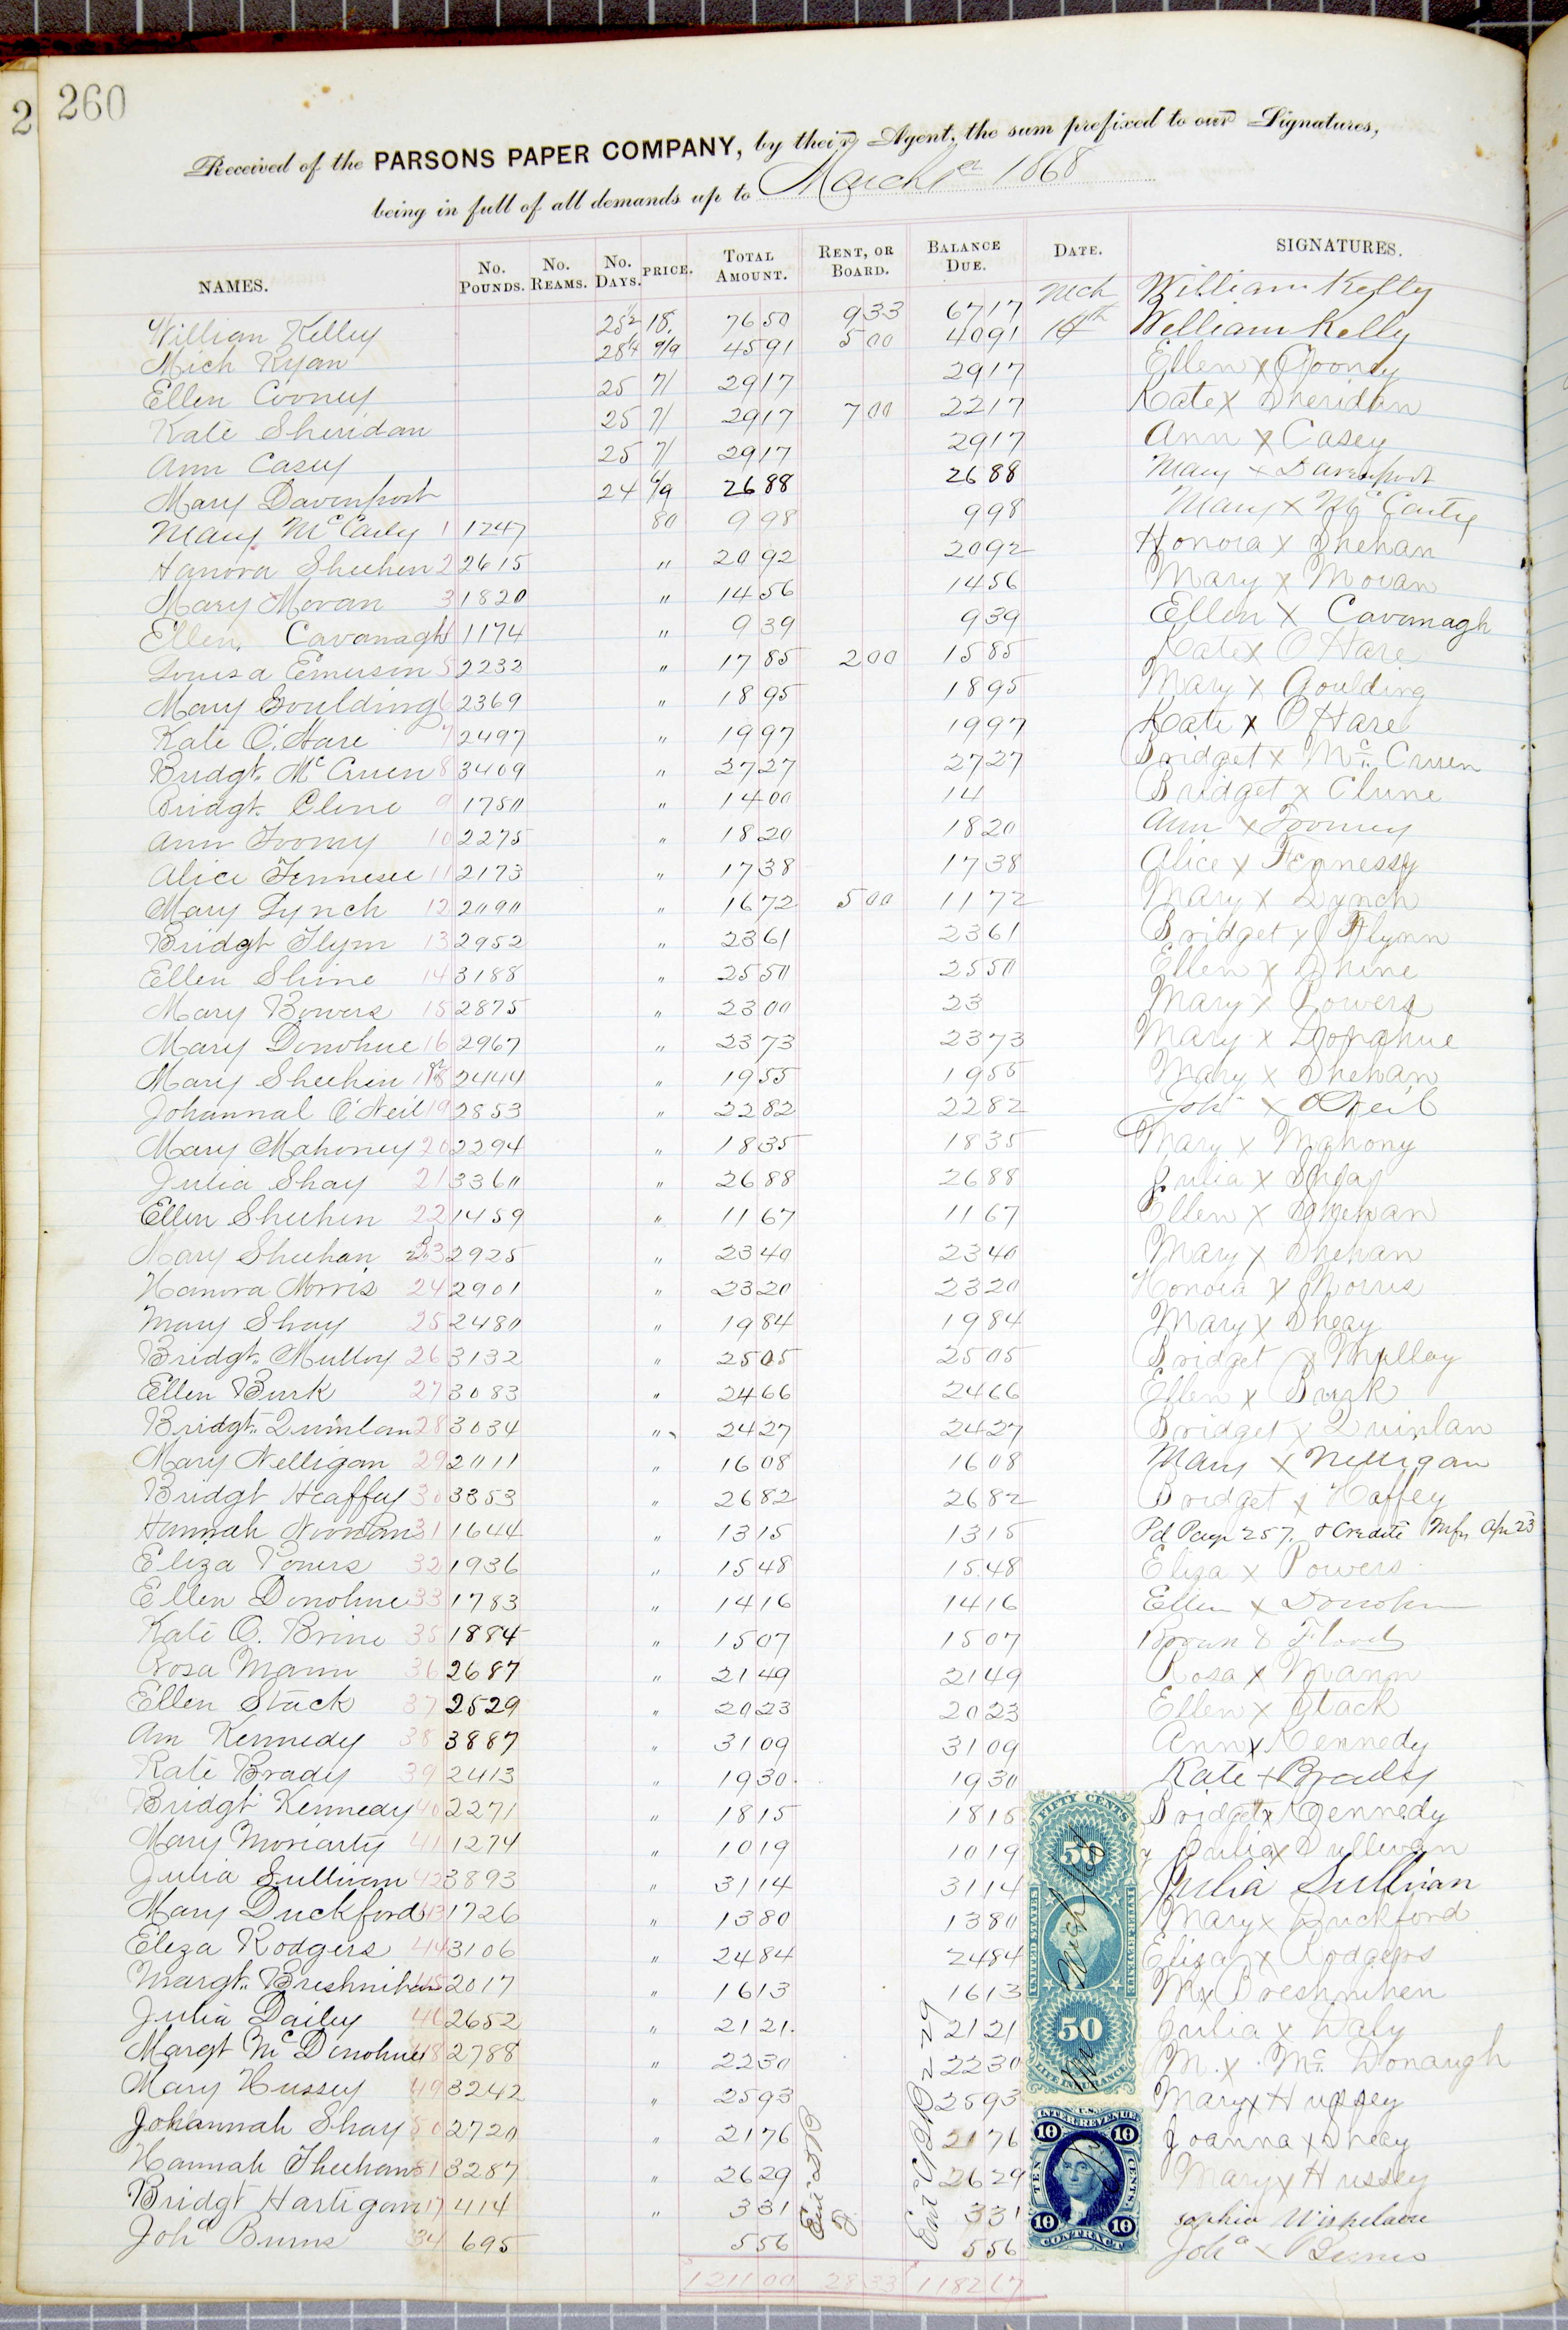 2
260
Received of the PARSONS PAPER COMPANY, by their Agent, the sum prefixed to our Signatures,
being in full of all demands up to March 1868
NAMES. No. Pounds. No. Reams. No. Days. PRICE. Total Amount. Rent, or Board. Balance Due. Date. SIGNATURES.
William Kelley 25½ 18. 76 50 9 33 67 17 Mch William Kelly
Mich Ryan 28¼ 9/9 45 91 5 00 40 91 14th William Kelly
Ellen Cooney 25 7/ 29 17 29 17 Ellen x Cooney
Kate Sheridan 25 7/ 29 17 7 00 22 17 Kate x Sheridan
Ann Casey 25 7/ 29 17 29 17 Ann x Casey
Mary Davenport 24 6/9 26 88 26 88 Mary x Davenport
Mary McCarty 1 1247 80 9 98 9 98 Mary x Mc Carty
Hanora Sheehen 2 2615 " 20 92 20 92 Honora x Shehan
Mary Moran 3 1820 " 14 56 14 56 Mary x Moran
Ellen Cavanagh 4 1174 " 9 39 9 39 Ellen x Cavanagh
Louisa Emerson 5 2232 " 17 85 2 00 15 85 Kate x O Hare
Mary Goulding 6 2369 " 18 95 18 95 Mary x Goulding
Kate O'Hare 7 2497 " 19 97 19 97 Kate x O Hare
Bridgt. McCruen 8 3409 " 27 27 27 27 Bridget x Mc. Cruen
Bridgt. Clune 9 1750 " 14 00 14 Bridget x Clune
Ann Toomy 10 2275 " 18 20 18 20 Ann x Toomey
Alice Fennesee 11 2173 " 17 38 17 38 Alice x Fennessy
Mary Lynch 12 2090 " 16 72 5 00 11 72 Mary x Lynch
Bridgt Flynn 13 2952 " 23 61 23 61 Bridget x Flynn
Ellen Shine 14 3188 " 25 50 25 50 Ellen x Shine
Mary Bowers 15 2875 " 23 00 23 Mary x Powers
Mary Donohue 16 2967 " 23 73 23 73 Mary x Donahue
Mary Sheehin 18 2444 " 19 55 19 55 Mary x Shehan
Johannah O'Neil 19 2853 " 22 82 22 82 Joh x O Neil
Mary Mahoney 20 2294 " 18 35 18 35 Mary x Mahony
Julia Shay 21 3360 " 26 88 26 88 Julia x Sheay
Ellen Sheehen 22 1459 " 11 67 11 67 Ellen x Shehan
Mary Sheehan 23 2925 " 23 40 23 40 Mary x Shehan
Hanora Morris 24 2901 " 23 20 23 20 Honora x Morris
Mary Shay 25 2480 " 19 84 19 84 Mary x Sheay
Bridgt. Mulloy 26 3132 " 25 05 25 05 Bridget x Mulloy
Ellen Burk 27 3083 " 24 66 24 66 Ellen x Burk
Bridgt. Quinlan 28 3034 " 24 27 24 27 Bridget x Quinlan
Mary Nelligan 29 2011 " 16 08 16 08 Mary x Nelligan
Bridgt Heaffey 30 3353 " 26 82 26 82 Bridget x Haffey
Hannah Noonan 31 1644 " 13 15 13 15 Pd Page 257. & Credite Mfg Apr 23
Eliza Powers 32 1936 " 15 48 15 48 Eliza x Powers
Ellen Donohue 33 1783 " 14 16 14 16 Ellen x Donohue
Kate O. Brine 35 1884 " 15 07 15 07 Flood
Rosa Mann 36 2687 " 21 49 21 49 Rosa x Mann
Ellen Stack 37 2529 " 20 23 20 23 Ellen x Stack
Ann Kennedy 38 3887 " 31 09 31 09 Ann x Kennedy
Kate Brady 39 2413 " 19 30 19 30 Kate x Brady
Bridgt Kennedy 40 2271 " 18 15 18 15 Bridget x Kennedy
Mary Moriarty 41 1274 " 10 19 10 19 Julia x Sullivan
Julia Sullivan 42 3893 " 31 14 31 14 Julia Sullivan
Mary Duckford 43 1726 " 13 80 13 80 Mary x Duckford
Eliza Rodgers 44 3106 " 24 84 24 84 Eliza x Rodgers
Margt. Breshnihan 45 2017 " 16 13 16 13 M x Breshnihen
Julia Dailey 46 2652 " 21 21 21 21 Julia x Daly
Margt McDonohue 48 2788 " 22 30 22 30 M. x Mc. Donaugh
Mary Hussey 49 3242 " 25 93 25 93 Mary x Hussey
Johannah Shay 50 2720 " 21 76 21 76 Joanna x Sheay
Hannah Sheehan 51 3287 " 26 29 26 29 Mary x Hussey
Bridgt Hartigan 17 414 " 3 31 3 31 Sophia
Joha Burns 34 695 5 56 5 56 Joha x Burns
1211 00 28 33 1182 67
FIFTY CENTS
50
UNITED STATES
INTER. REVENUE
50
LIFE INSURANCE
U.S.
INTER. REVENUE
10 10
TEN CENTS.
10 10
CONTRACT